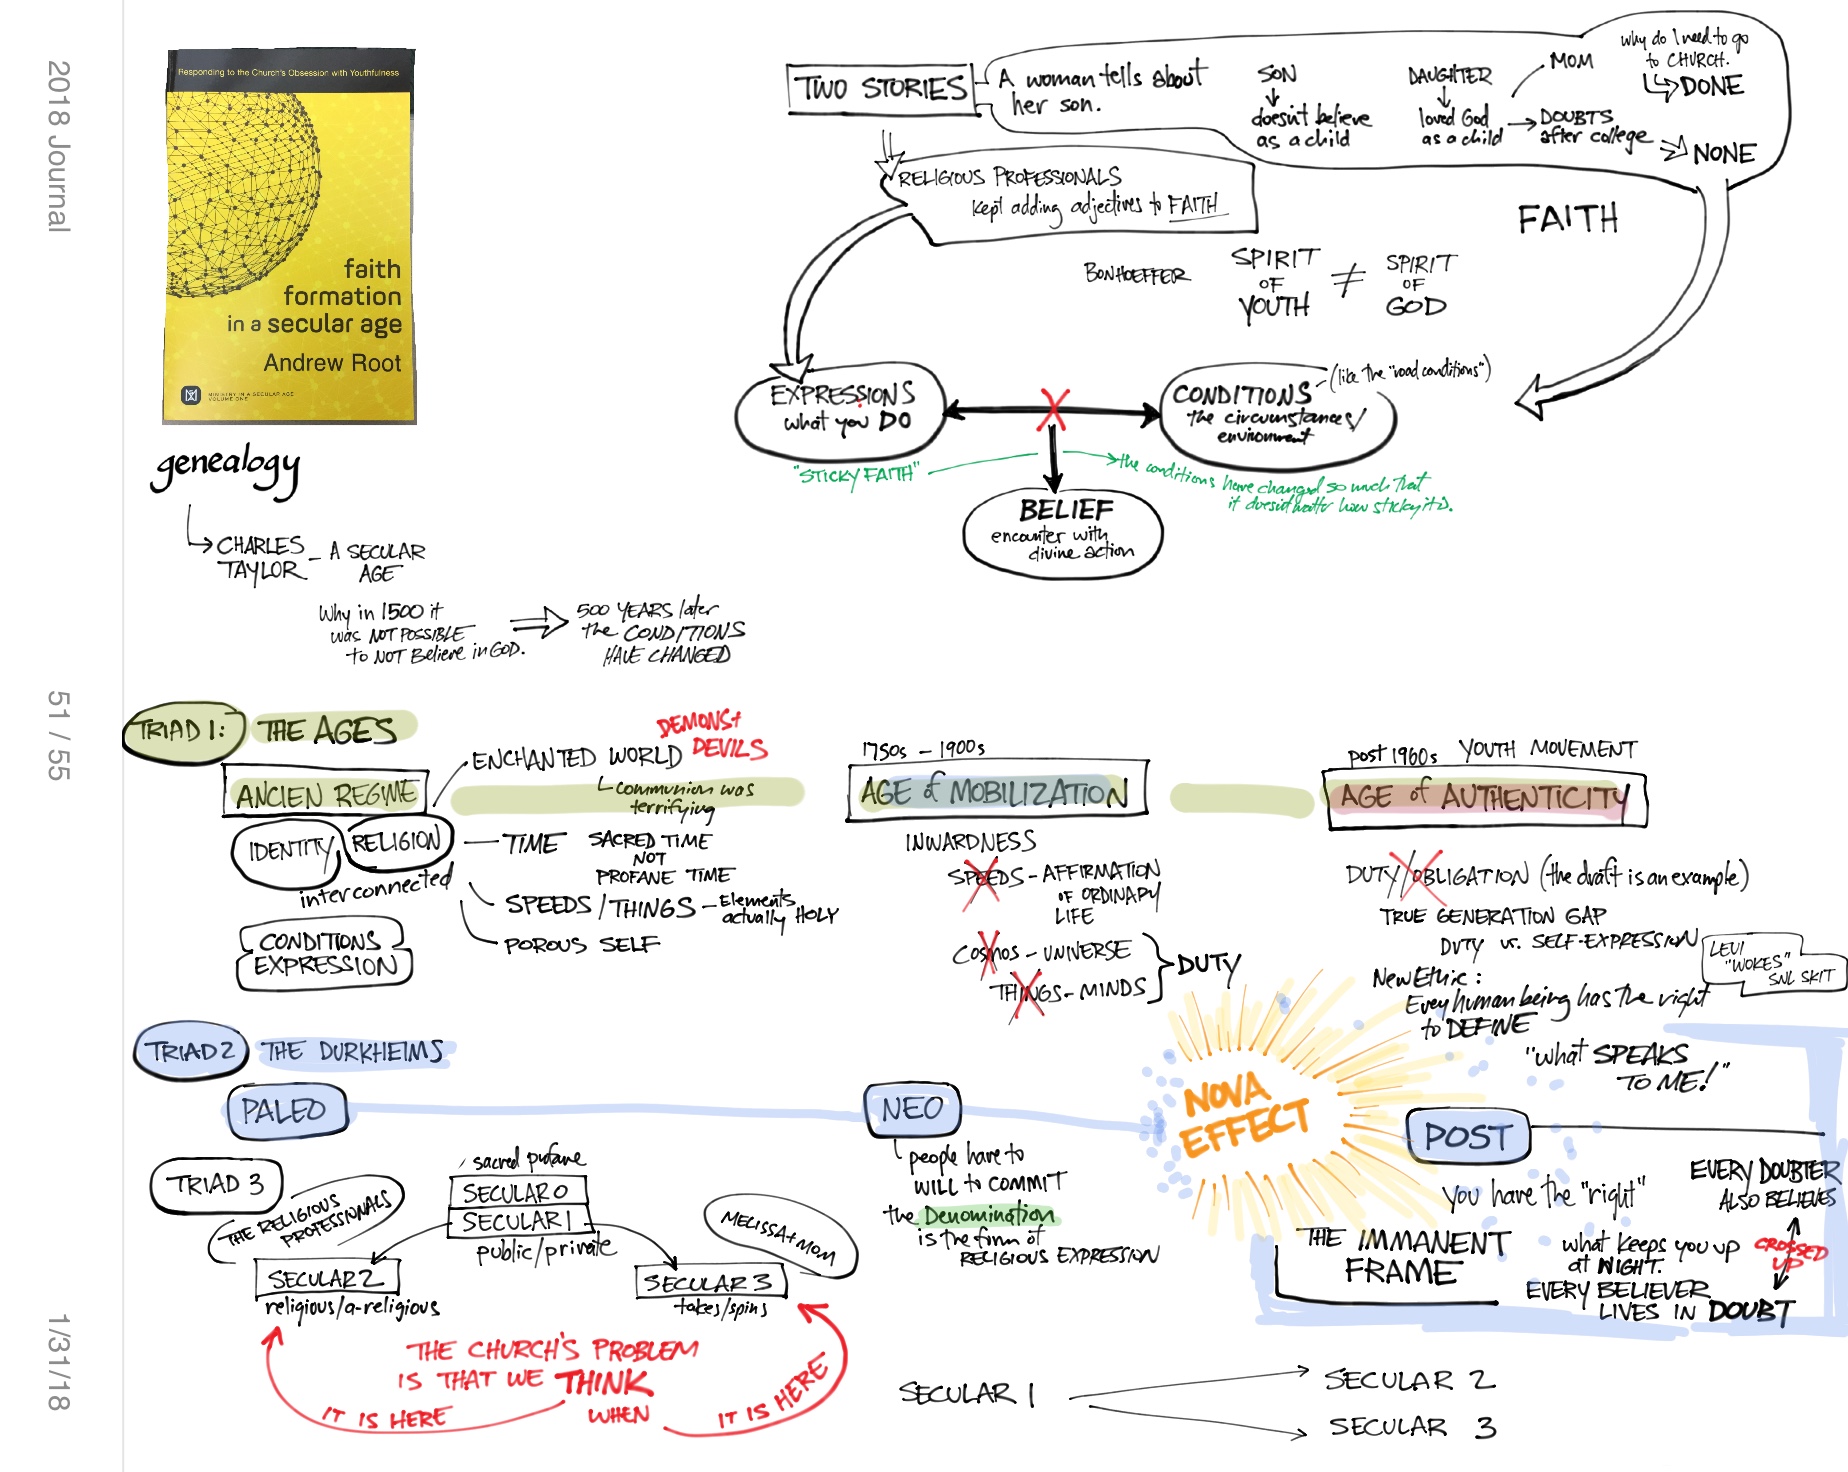 2018 Journal
51 / 55
1/31/18
Responding to the Church's Obsession with Youthfulness
faith
formation
in a secular age
Andrew Root
MINISTRY IN A SECULAR AGE
VOLUME ONE
TWO STORIES
A woman tells about
her son.
SON
doesn't believe
as a child
DAUGHTER
loved God
as a child
MOM
DOUBTS
after college
why do I need to go
to CHURCH.
DONE
NONE
RELIGIOUS PROFESSIONALS
kept adding adjectives to FAITH
FAITH
BONHOEFFER
SPIRIT
OF
YOUTH
≠
SPIRIT
OF
GOD
EXPRESSIONS
what you DO
CONDITIONS
the circumstances/
environment
(like the "road conditions")
"STICKY FAITH"
the conditions have changed so much that
it doesn't matter how sticky it is.
BELIEF
encounter with
divine action
genealogy
CHARLES
TAYLOR
- A SECULAR
AGE
Why in 1500 it
was NOT POSSIBLE
to NOT Believe in GOD.
500 YEARS later
the CONDITIONS
HAVE CHANGED
TRIAD 1:
THE AGES
ANCIEN REGIME
ENCHANTED WORLD
DEMONS +
DEVILS
communion was
terrifying
IDENTITY
RELIGION
interconnected
CONDITIONS
EXPRESSION
TIME
SACRED TIME
NOT
PROFANE TIME
SPEEDS / THINGS - Elements
actually HOLY
POROUS SELF
1750s - 1900s
AGE of MOBILIZATION
INWARDNESS
SPEEDS - AFFIRMATION
OF ORDINARY
LIFE
COSMOS - UNIVERSE
THINGS - MINDS
DUTY
post 1960s YOUTH MOVEMENT
AGE of AUTHENTICITY
DUTY/OBLIGATION (the draft is an example)
TRUE GENERATION GAP
DUTY vs. SELF-EXPRESSION
LEVI
"WOKES"
SNL SKIT
New Ethic:
Every human being has the right
to DEFINE
"what SPEAKS
TO ME!"
TRIAD 2
THE DURKHEIMS
PALEO
NEO
people have to
WILL to COMMIT
the Denomination
is the form of
RELIGIOUS EXPRESSION
NOVA
EFFECT
POST
You have the "right"
EVERY DOUBTER
ALSO BELIEVES
CROSSED
UP
what keeps you up
at NIGHT.
EVERY BELIEVER
LIVES IN DOUBT
THE IMMANENT
FRAME
TRIAD 3
THE RELIGIOUS
PROFESSIONALS
sacred profane
SECULAR 0
SECULAR 1
public/private
MELISSA + MOM
SECULAR 2
religious/a-religious
SECULAR 3
takes/spins
THE CHURCH'S PROBLEM
IS THAT WE THINK
WHEN
IT IS HERE
IT IS HERE
SECULAR 1
SECULAR 2
SECULAR 3